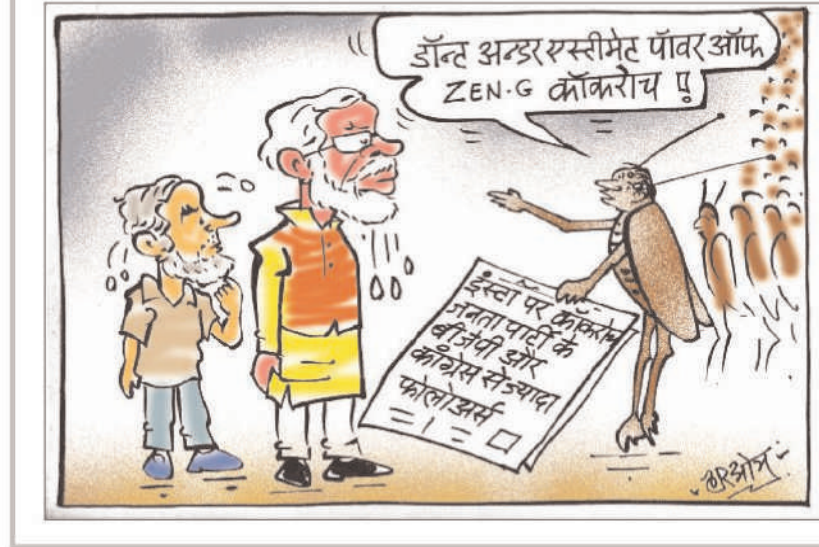 डॉन्ट अन्डरएस्टीमेट पॉवर ऑफ
ZEN-G कॉकरोच !!
इंस्टा पर कॉकरोच
जनता पार्टी के
बीजेपी और
कांग्रेस से ज्यादा
फोलोअर्स